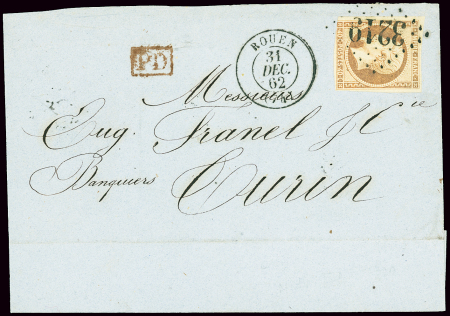 PD
ROUEN
31
DEC.
62
3219
Messieurs
Eug. Franel & Cie
Banquiers Turin